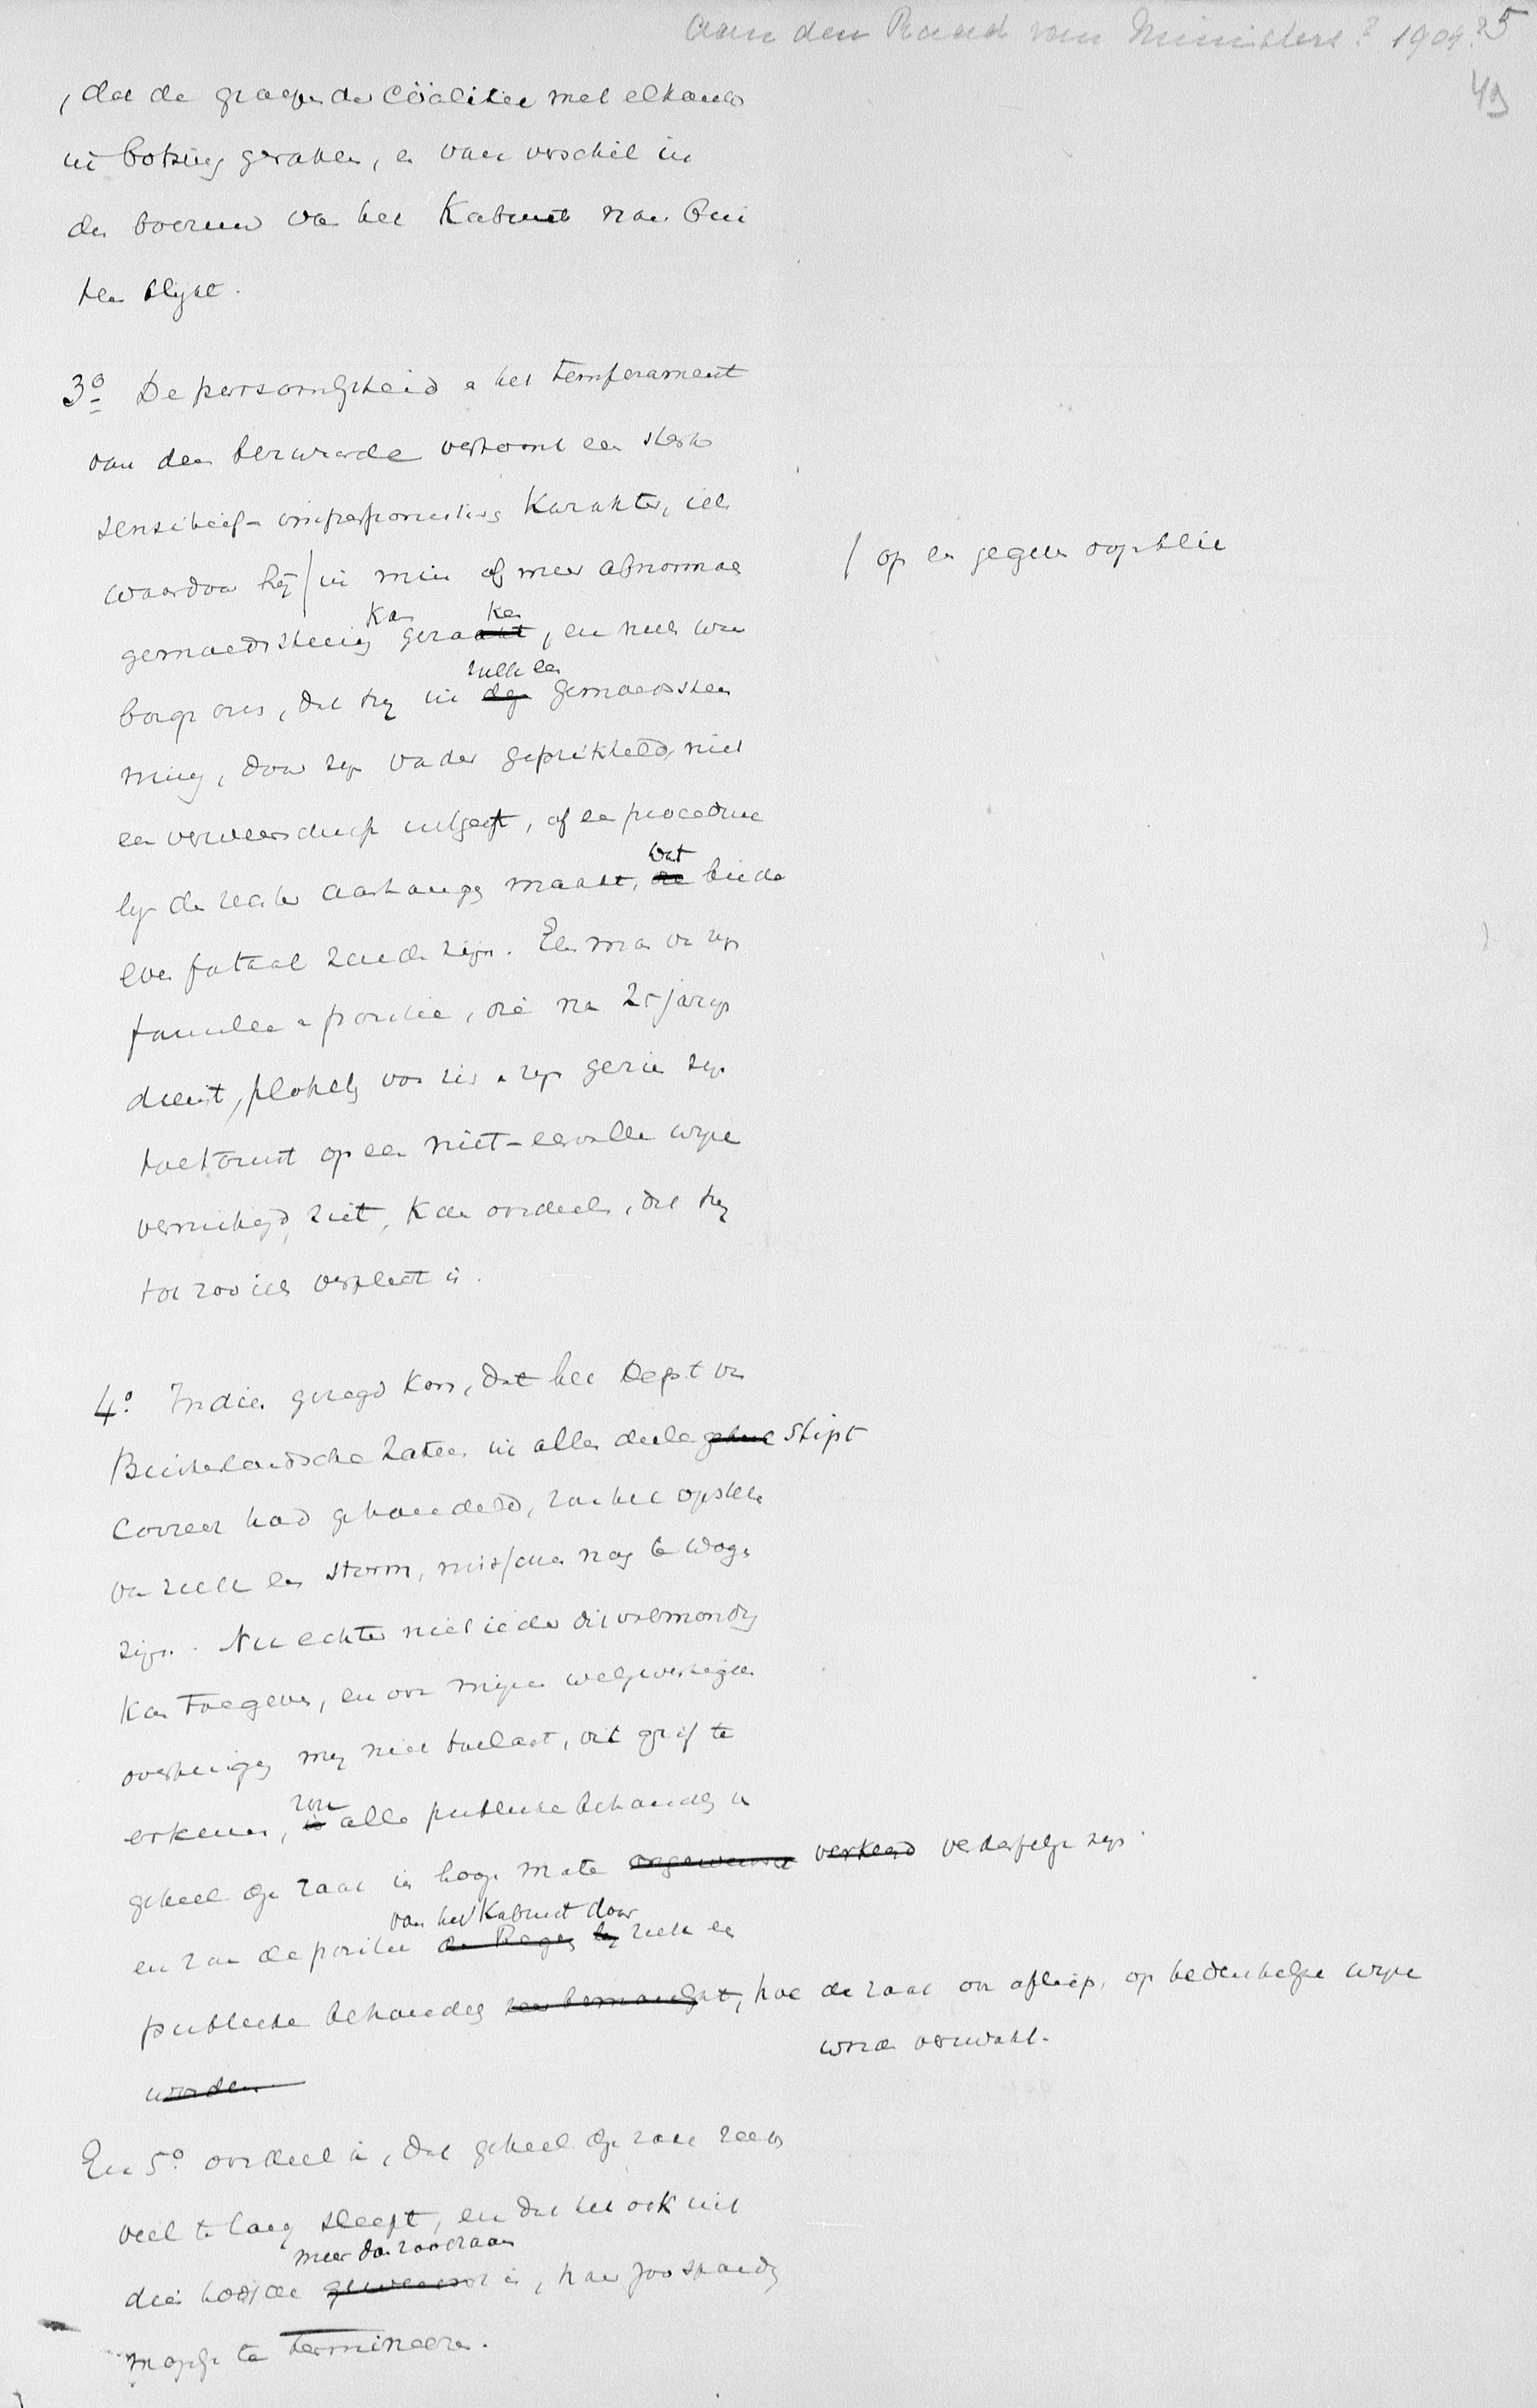 aan den Raad van Ministers? 1904?5
49
, dat de groepen der Coälitie met elkander
in botsing geraken, en van verschil in
den boezem van het Kabinet naar bui
ten blijkt.
3o De persoonlijkheid en het temperament
van den betrokkene vertoont een sterk
sensitief - impressionistisch karakter, iets
waardoor hij / in min of meer abnormale
/ op een gegeven oogenblik
kan ken
gemoedsstemming geraakt, en niets waar
zulk een
borgt ons, dat hij in die gemoedsstem
ming, door zijn vader geprikkeld, niet
een verweerschrift uitgeeft, of een procedure
wat
bij den rechter aanhangig maakt, die beide
even fataal zouden zijn. Een man van zijn
familie en positie, die na 25 jarige
dienst, plotseling voor zich en zijn gezin zijn
toekomst op een niet-eervolle wijze
vernietigd ziet, kan oordeelen, dat hij
tot zoo iets verplicht is.
4o Indien gezegd kon, dat het Dept van
Buitenlandsche Zaken in allen deele geheel stipt
correct had gehandeld, zou het opsteken
van zulk een storm, misschien nog te wagen
zijn. Nu echter niet ieder dit volmondig
kan toegeven, en ook mijne welgevestigde
overtuiging mij niet toelaat, dit grif te
zou
erkennen, is alle publieke behandeling van
geheel deze zaak in hooge mate ongewenscht verkeerd verderfelijk zijn.
van het Kabinet door
en zou de positie der Regeg bij zulk een
publieke behandeling, hoe de zaak ook afliep, op bedenkelijke wijze
worden verzwakt.
worden
En 5o oordeel ik, dat geheel deze zaak reeds
veel te lang sleept, en dat het ook uit
meer dan raadzaam
dien hoofde gewenscht is, haar zoo spoedig
mogelijk te termineeren.